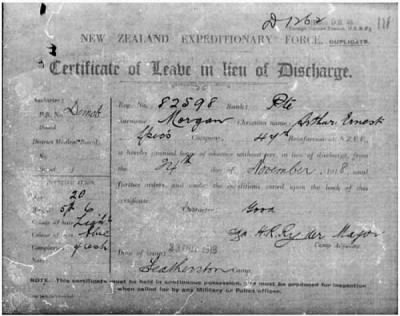 D 1262
NEW ZEALAND EXPEDITIONARY FORCE. DUPLICATE.
Certificate of Leave in lieu of Discharge.
Authority: Reg. No. 82598 Rank: Pte
D.R. No. Demob Surname Morgan Christian name Arthur Ernest
Board Company, 44th Reinforcements N.Z.E.F.
District Medical Board, is hereby granted leave of absence without pay, in lieu of discharge, from
the 24th day of November, 1918, until
further orders, and under the conditions stated upon the back of this
certificate.
Age: 20
Height: 5ft 6 Character: Good
Colour of hair: Light
Colour of eyes: Blue H.R. Ryder Major
Complexion: Fresh Camp Adjutant
Date of issue: 1918
Featherston Camp.
NOTE. This certificate must be held in continuous possession, and must be produced for inspection
when called for by any Military or Police officer.